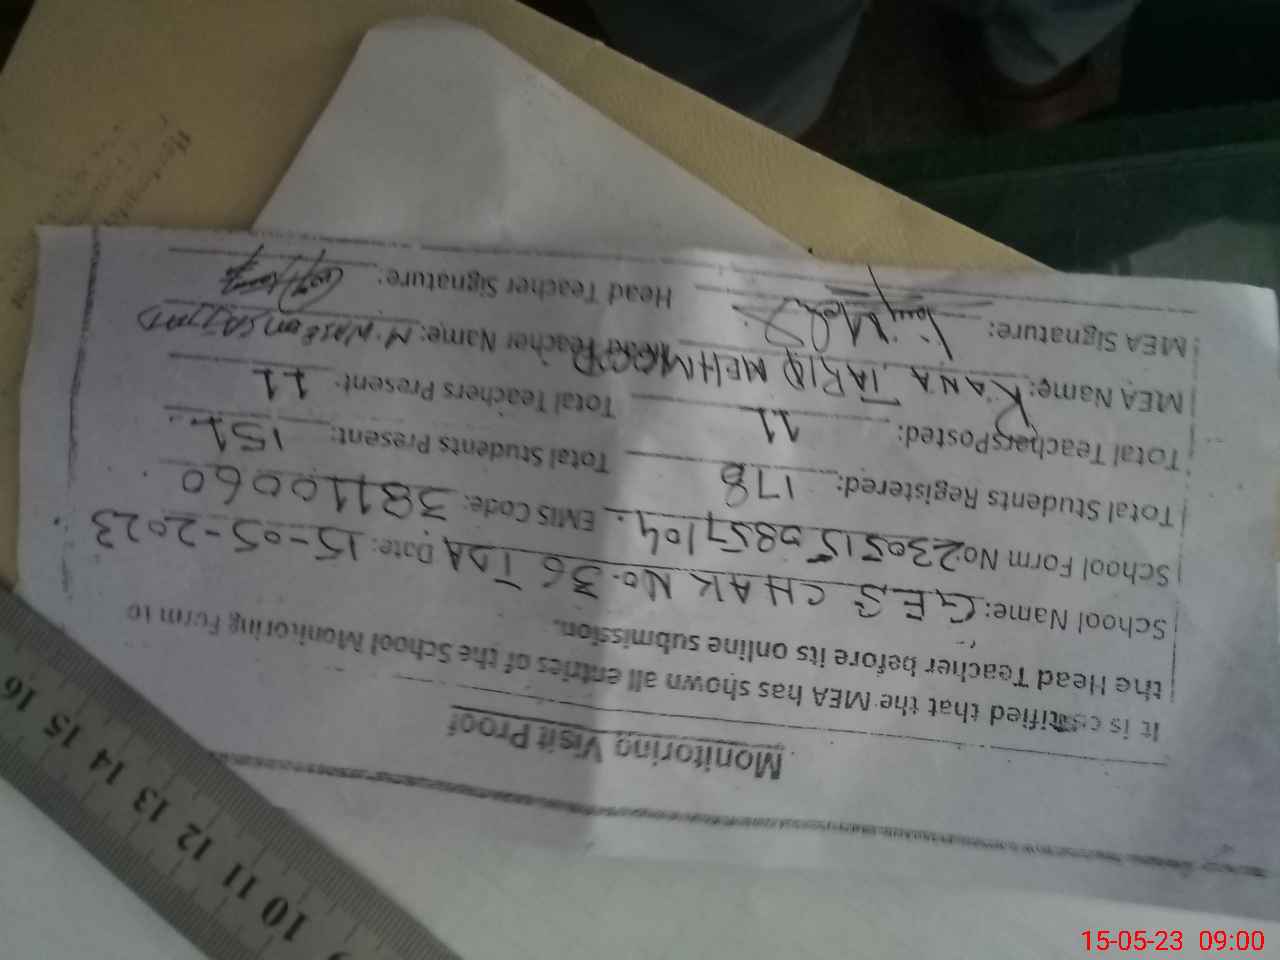 Monitoring Visit Proof
It is certified that the MEA has shown all entries of the School Monitoring Form to
the Head Teacher before its online submission.
School Name: G.E.S CHAK No. 36 TDA Date: 15-05-2023
School Form No: 230515 0857104. EMIS Code: 38110060
Total Students Registered: 178 Total Students Present: 151
Total Teachers Posted: 11 Total Teachers Present: 11
MEA Name: RANA TARIQ MEHMOOD Head Teacher Name: M. SAJJAD
MEA Signature: Head Teacher Signature:
10 11 12 13 14 15 16
15-05-23 09:00